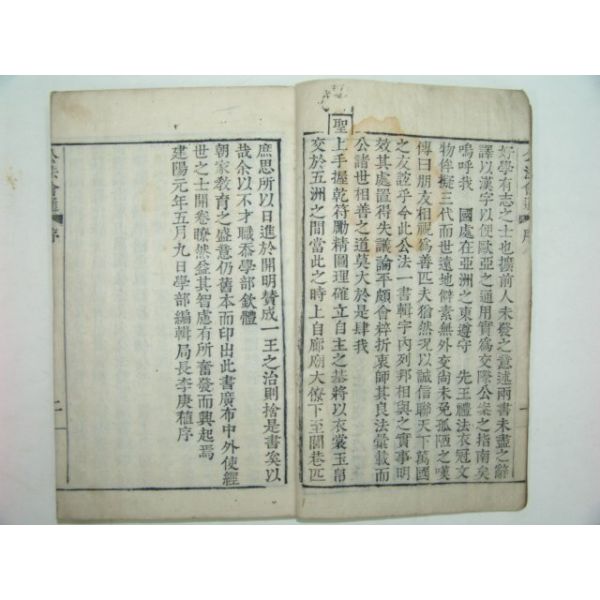 好學有志之士也擴前人未發之意述兩書未盡之辭
譯以漢字以便歐亞之通用實爲交際公案之指南矣
嗚呼我 國處在亞洲之東遵守 先王禮法衣冠文
物侔擬三代而世遠地僻素無外交尙未免孤陋之嘆
傳曰朋友相觀爲善匹夫猶然況以誠信聯天下萬國
之友誼乎今此公法一書輯宇內列邦相與之實事明
效其處置得失議論平頗會粹折衷師其良法彙載而
公諸世相善之道莫大於是肆我
聖上手握乾符勵精圖理確立自主之基將以衣裳玉帛
交於五洲之間當此之時上自廊廟大僚下至閭巷匹
庶思所以日進於開明贊成一王之治則捨是書奚以
哉余以不才職忝學部欽體
朝家敎育之盛意仍舊本而印出此書廣布中外使經
世之士開卷瞭然益其智慮有所奮發而興起焉
建陽元年五月九日學部編輯局長李庚稙序
公法會通 序 二